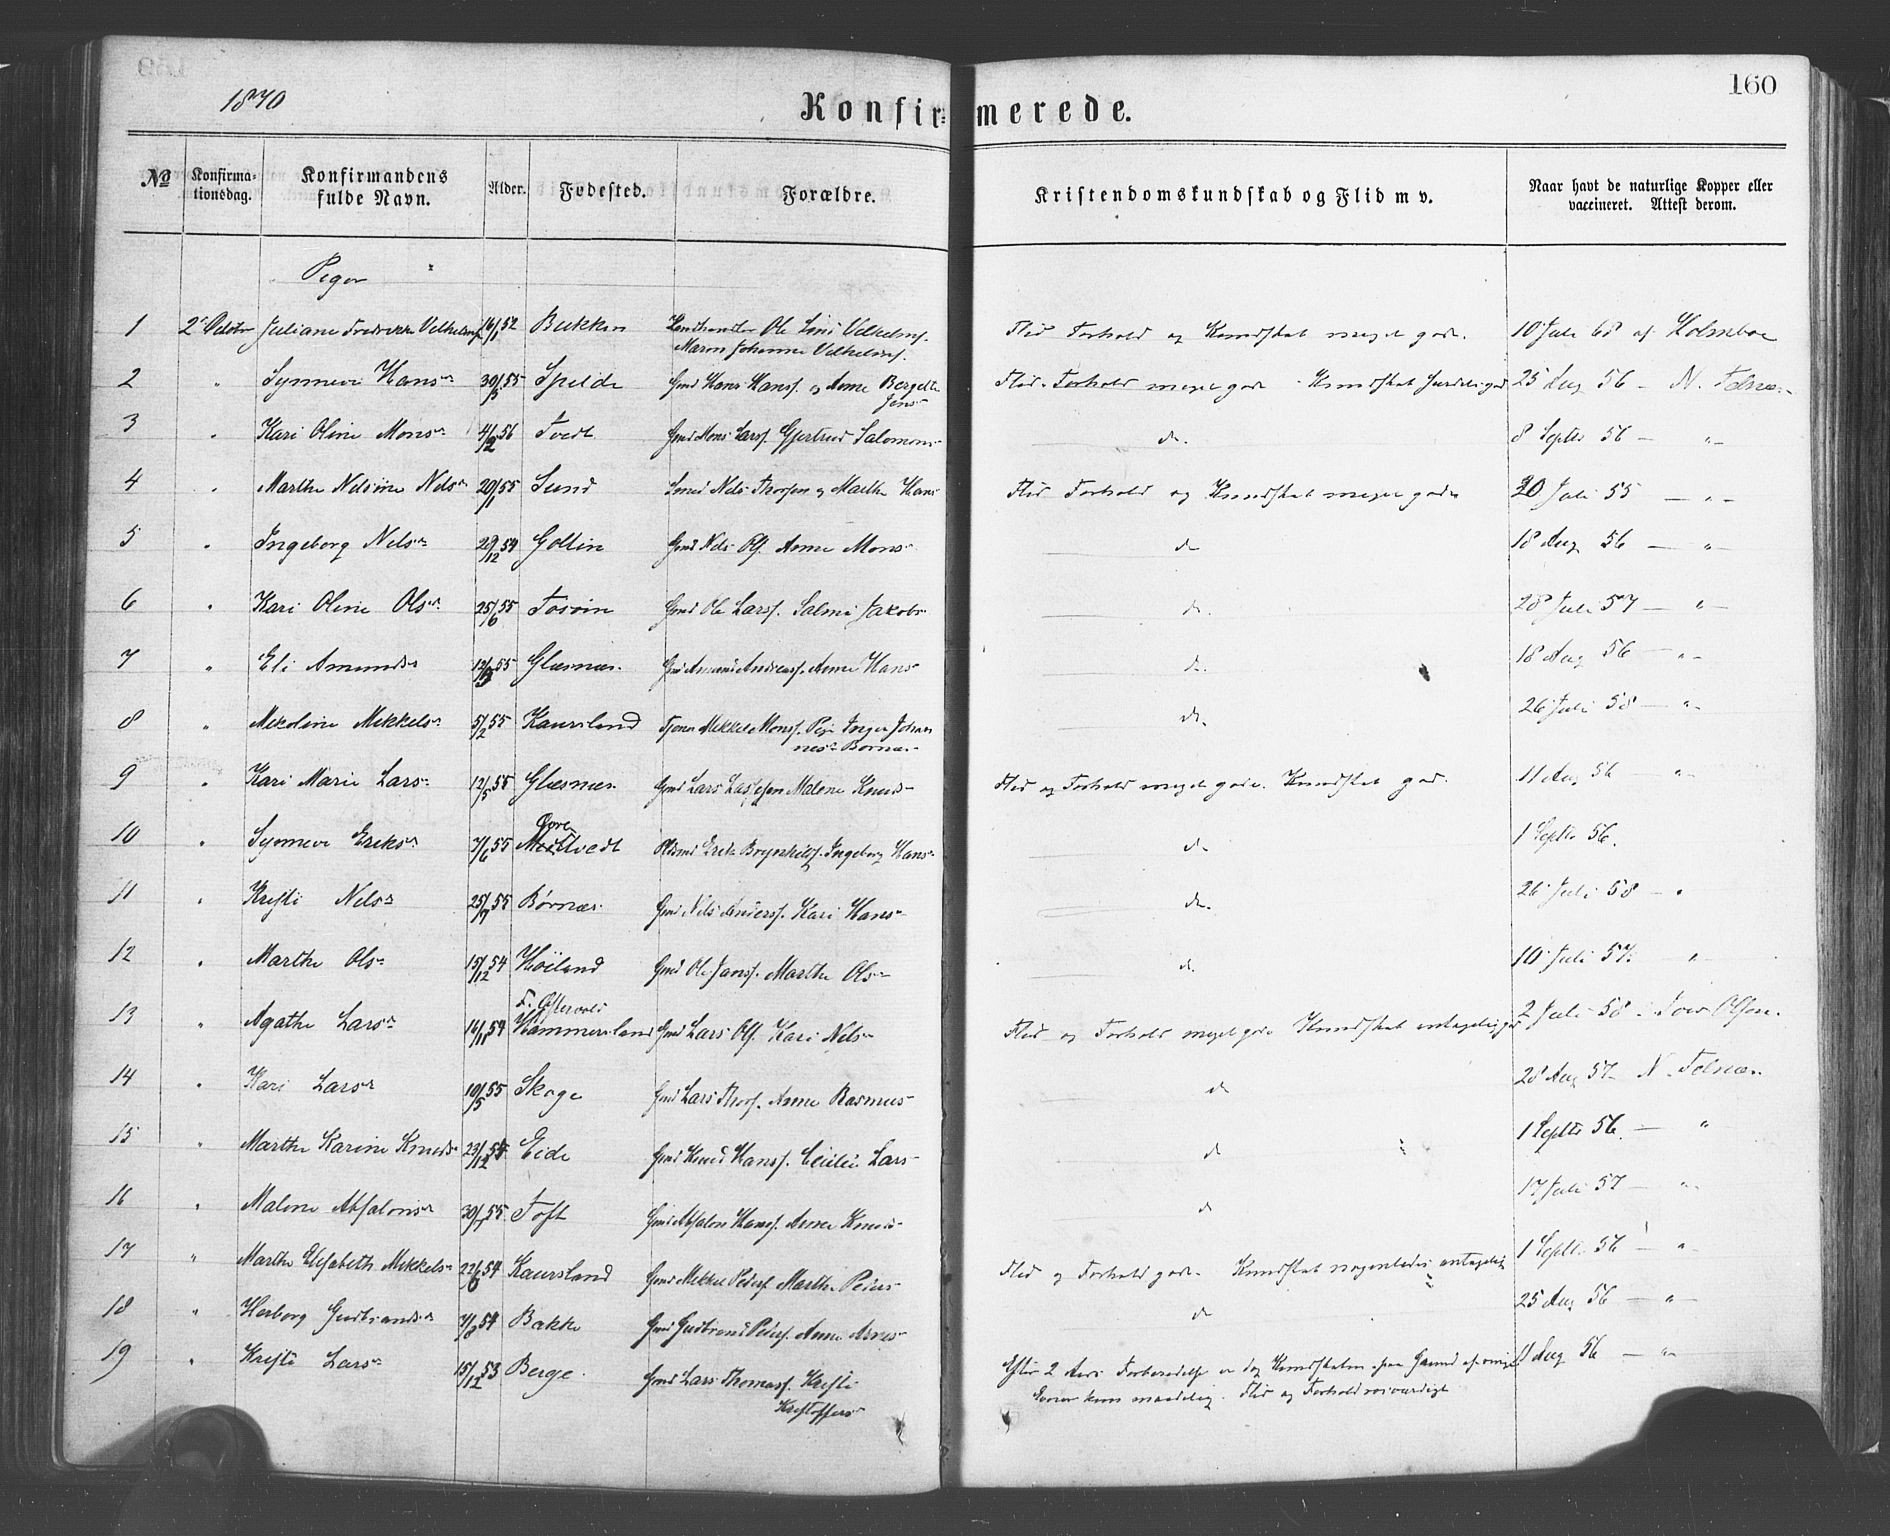 160
1870
Konfirmerede.
No Konfirmationsdag. Konfirmandens fulde Navn. Alder. Fødested. Forældre. Kristendomskundskab og Flid m v. Naar havt de naturlige Kopper eller vaccineret. Attest derom.
Piger
1 2 Oclobr Juliane Fredrikke Vilhelmsf 16/1 52 Bukken Ole Vilhelmsf. Flid Forhold og Kundskab meget gode. 10 Juli 68 af Holmboe
Maren Johanne Vilhelmsf.
2 " Synneve Hansdr 30/5 55 Spilde Gmd Hans Hansf. og Anne Bergitte Flid Forhold meget gode Kundskab 25 Aug 56 - N. Telnæs
Jens-
3 " Kari Oline Monsdr 4/2 56 Tvedt Gmd Mons Larsf. Gjertrud Salomons- do. 8 Septbr 56 - " -
4 " Marthe Nilsine Nilsdr 20/1 55 Sund Nils Thorsen og Marthe Hans Flid Forhold og Kundskab meget gode 30 Juli 55 - " -
5 " Ingeborg Nilsdr 29/12 54 Goltin Gmd Nils Olsf. Anne Mons- do 18 Aug 56 - " -
6 " Kari Oline Olsdr 25/6 55 Toføin Gmd Ole Larsf. Salmi Jakobs- do. 28 Juli 57 - " -
7 " Eli Amundsdr 12/3 55 Glæsnæs. Gmd Amund Andreasf. Anne Hans- do. 18 Aug 56 - " -
8 " Mikoline Mikkelsdr 5/2 55 Kaursland Tjener Mikkel Monsf. Pige Inger Johan- do. 26 Juli 58 - " -
nesdr Børnæs.
9 " Kari Marie Larsdr 12/5 55 Glæsnæs. Gmd Lars Malene Knuds- Flid og Forhold meget gode. Kundskab god. 11 Aug 56 - " -
10 " Synneve Eriksdr 7/6 55 Øvre tvedt Erik Brynhilsf. Ingeborg Hansdr do. 1 Septbr 56.
11 " Kristi Nilsdr 25/7 55 Børnæs. Gmd Nils Andersf. Kari Hans- do. 26 Juli 58 - "
12 " Marthe Olsdr 15/12 54 Høiland Gmd Ole Jansf. Marthe Ols- do. 10 Juli 57. "
13 " Agathe Larsdr 14/11 54 F. Østervold Hammersland Gmd Lars Olsf. Kari Nils- Flid og Forhold meget gode Kundskab antagelig 2 Juli 58 - Olsen.
14 " Kari Larsdr 10/5 55 Skoge Gmd Lars Thorsf. Anne Rasmus- do 28 Aug 57 - N. Telnæs.
15 " Marthe Karine Knudsdr 23/12 54 Eide Gmd Knud Hansf. Cicilie Lars- do 1 Septbr 56. - "
16 " Malene Absalonsdr 30/1 55 Toft Gmd Absalon Hansf. Anne Knuds- do 17 Juli 57 - " -
17 " Marthe Elisabeth Mikkelsdr 22/6 54 Kaursland Gmd Mikkel Pedersf. Marthe Peders- Flid og Forhold gode. Kundskab nogenledes antagelig 1 Septbr 56 "
18 " Herborg Gudbrandsdr 7/8 54 Bakke Gmd Gudbrand Pedersf. Anne Arnes- do 25 Aug 56 - " -
19 " Kristi Larsdr 15/12 53 Berge. Gmd Lars Thomasf. Kristi Efter 2 Aars Forberedelse er dog Kundskaben paa Grund af ringe 11 Aug 56 - " -
Kristoffers- Evner kun maadelig. Flid og Forhold rosværdigt